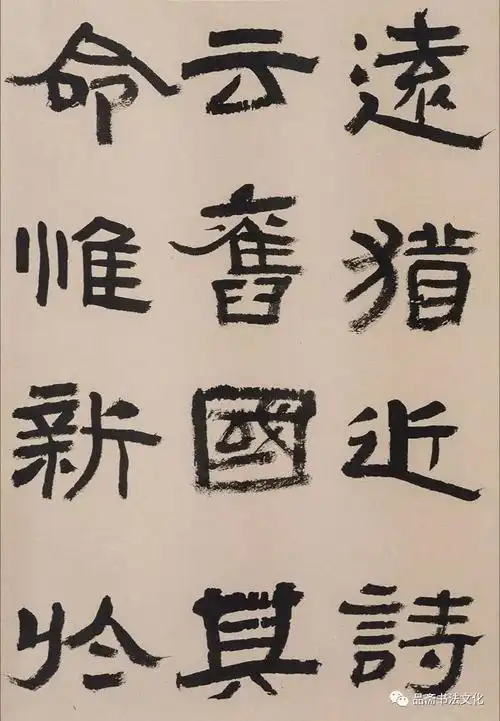 遠猶近詩
云舊國其
命惟新於
品斋书法文化